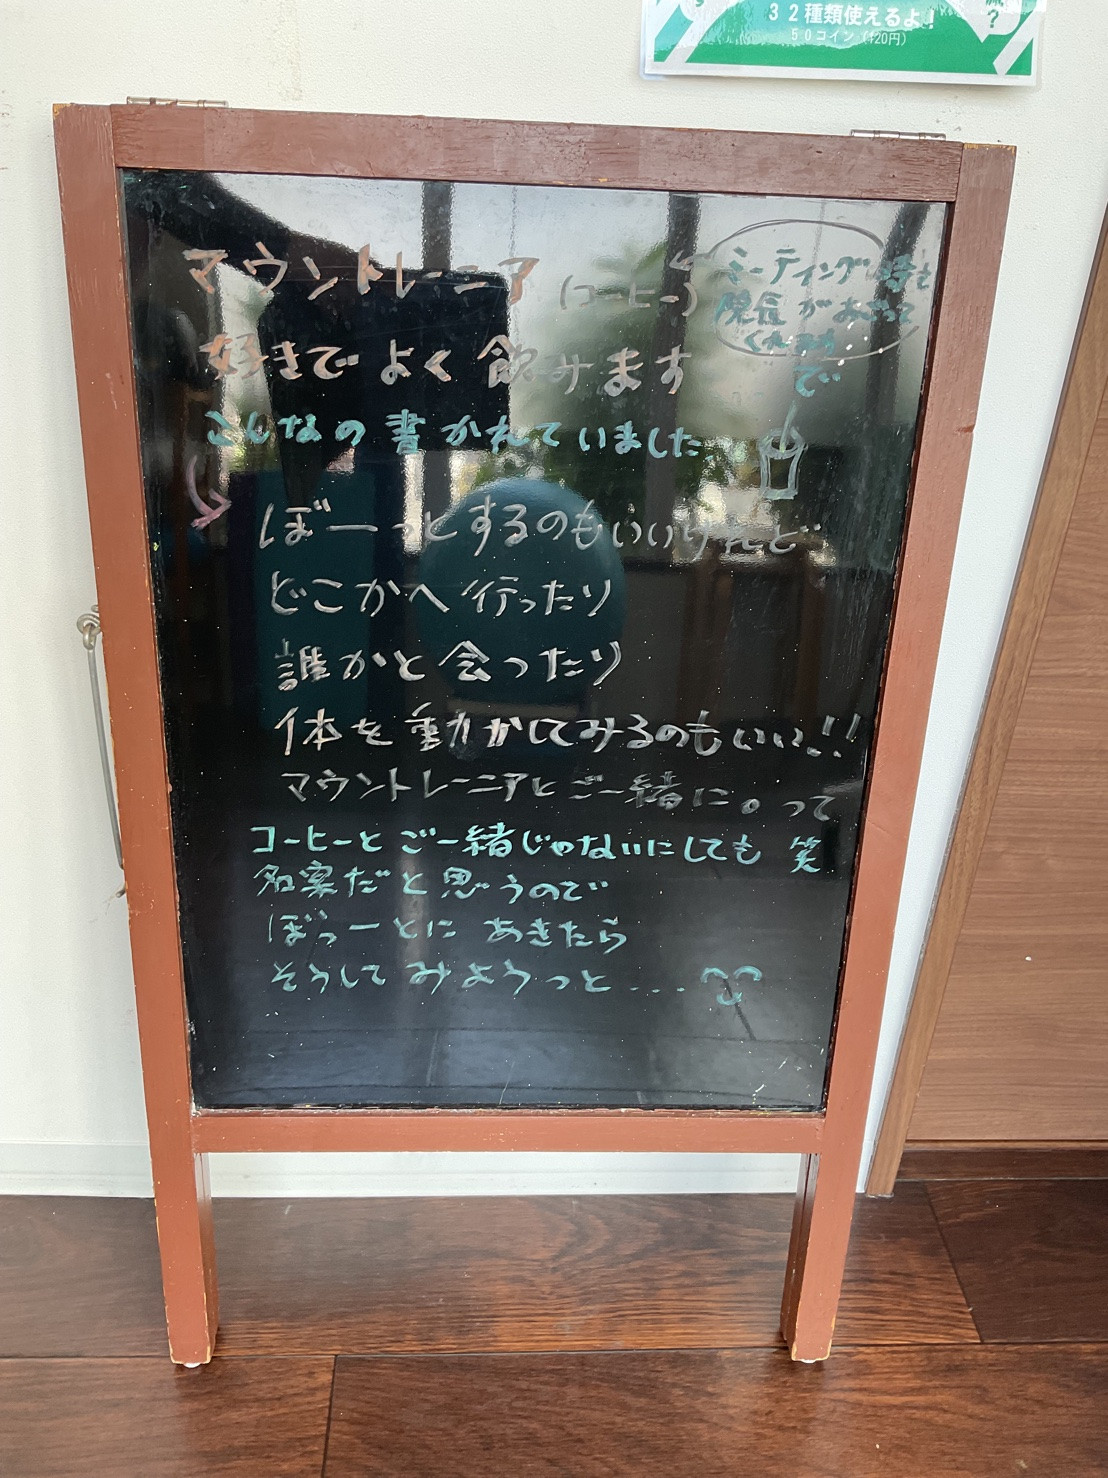 32種類使えるよ!
50コイン(120円)
マウントレーニア (コーヒー)
ミーティング時も
院長がおごって
くれるか
好きでよく飲みます
で
こんなの書かれていました
ぼーっとするのもいいけれど
どこかへ行ったり
誰かと会ったり
体を動かしてみるのもいい!!
マウントレーニアとご一緒に。って
コーヒーとご一緒じゃないにしても 笑
名案だと思うので
ぼっーとに あきたら
そうしてみようっと...